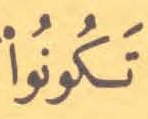 تَكُونُوا۟